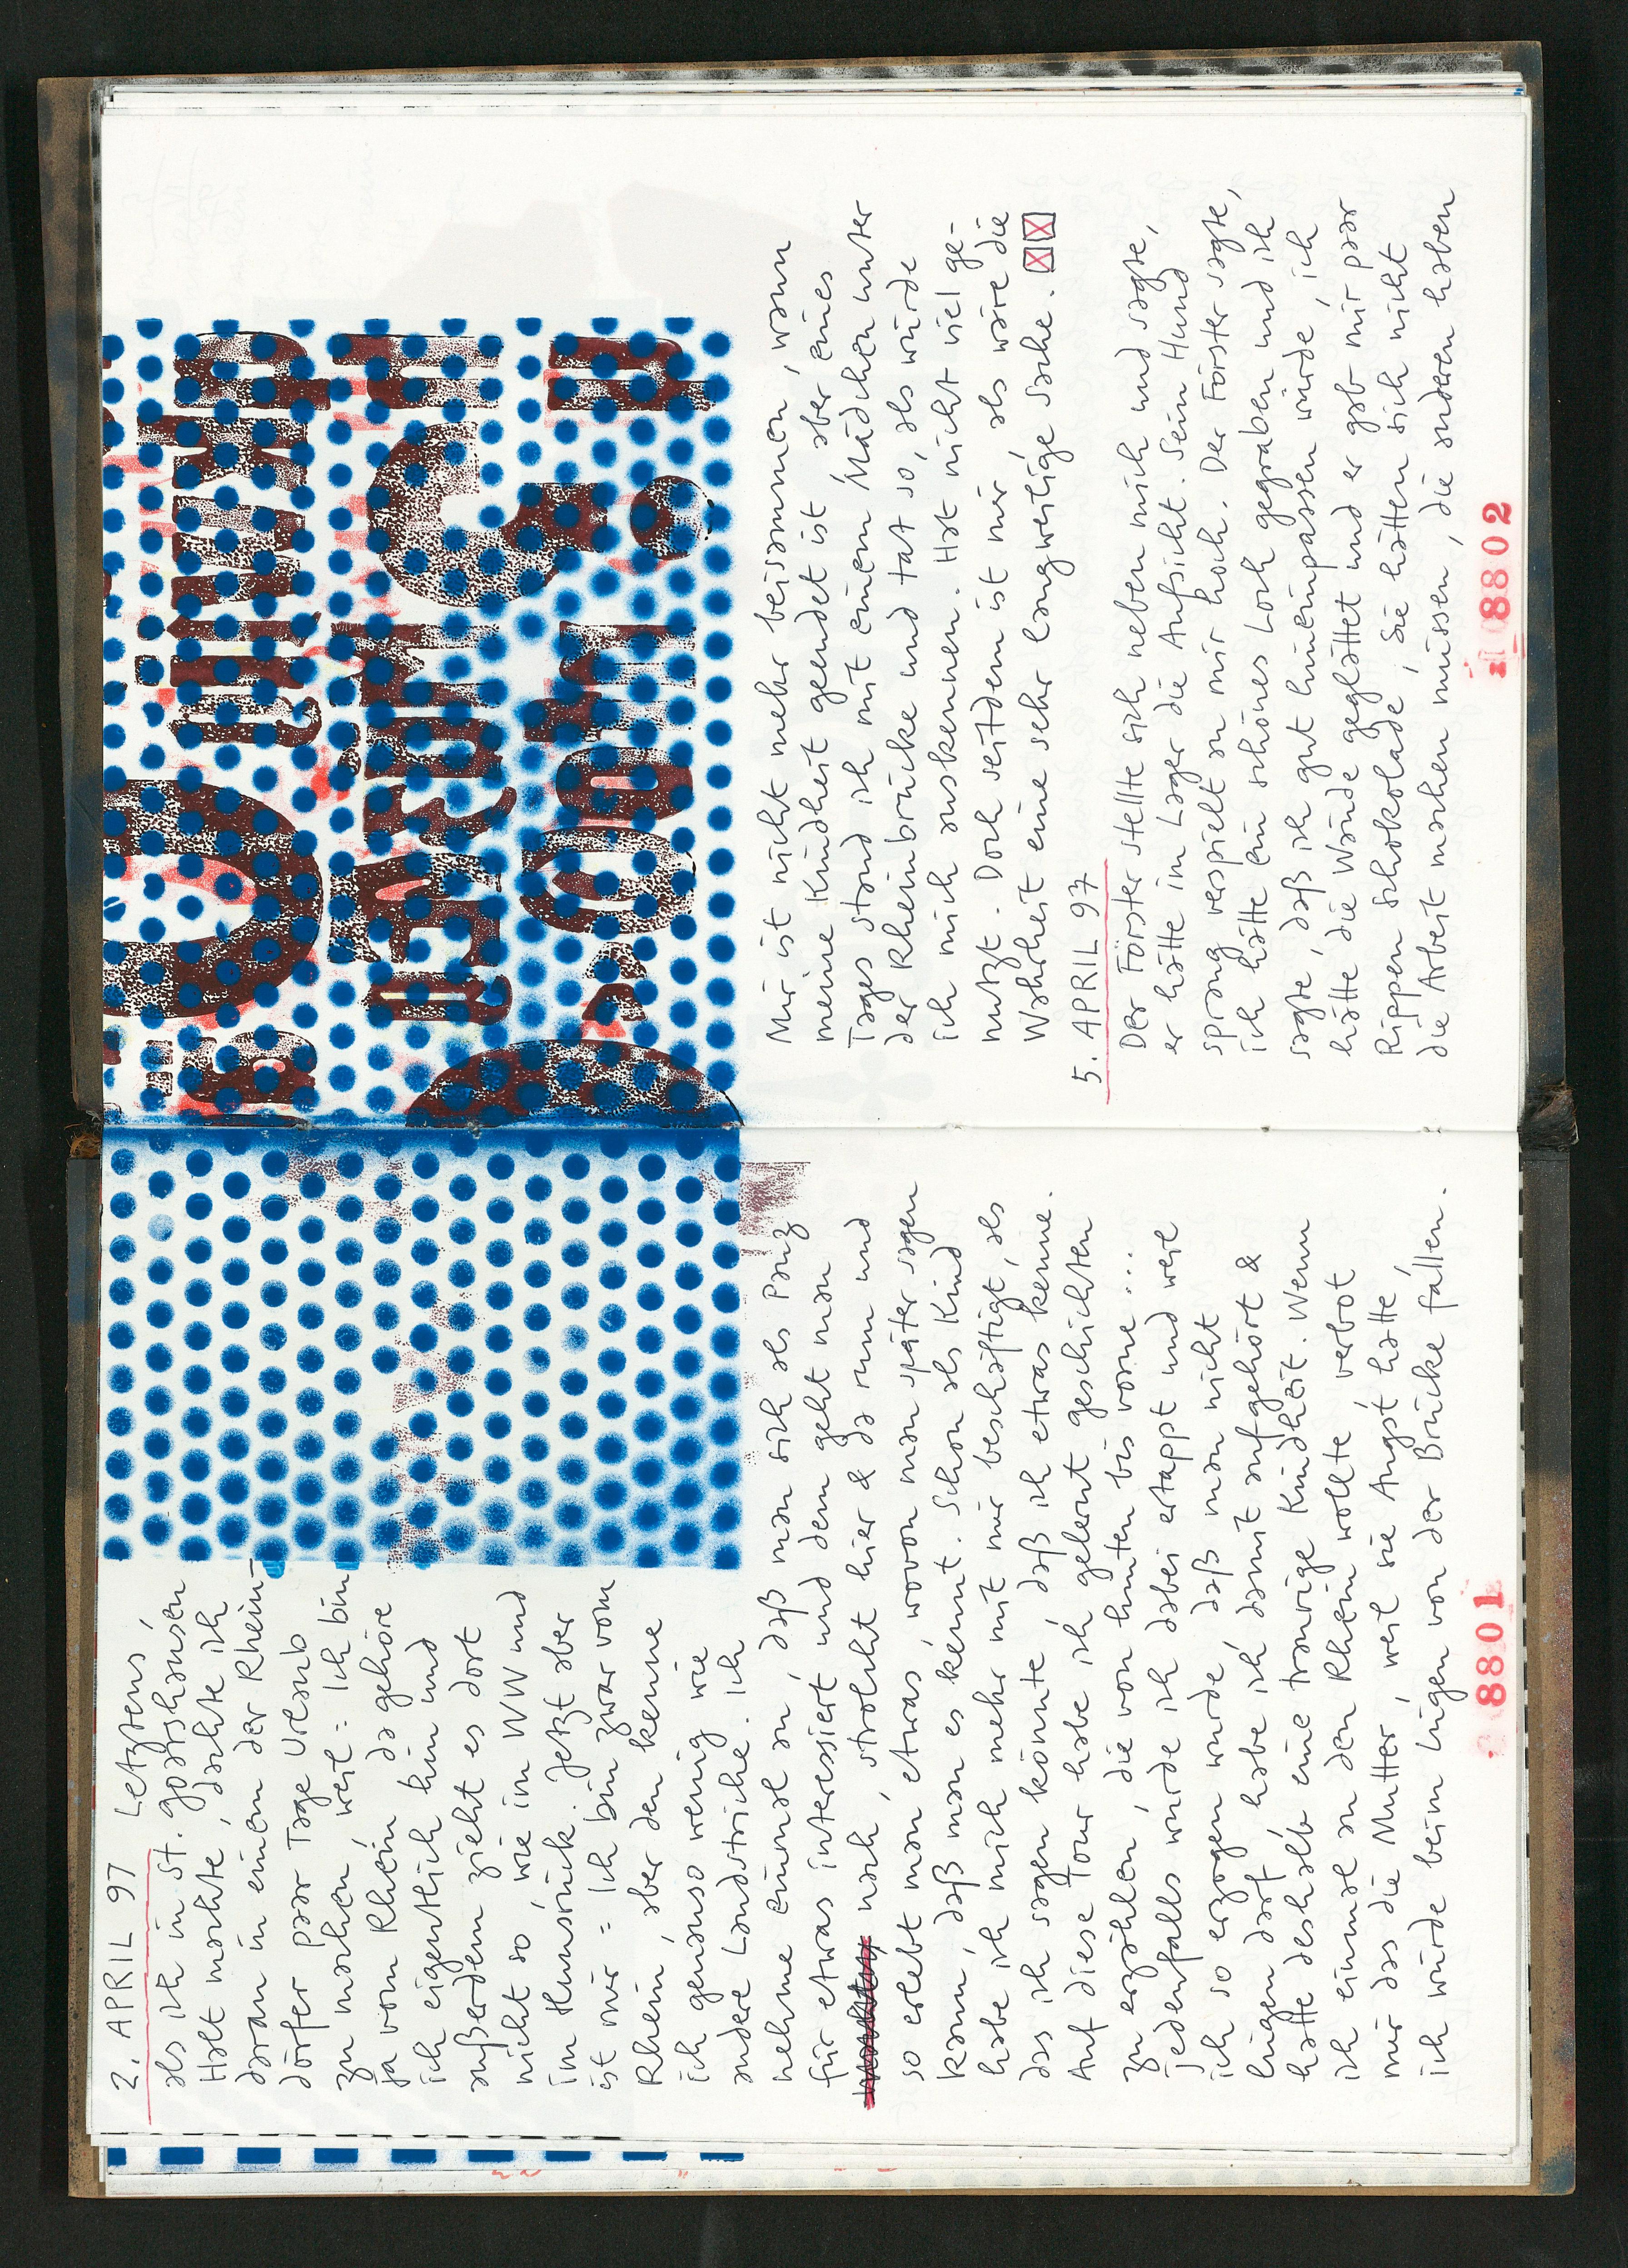 2. APRIL 97 Letztens,
als ich in St. Goarshausen
Halt machte, dachte ich
daran in einem der Rhein-
dörfer paar Tage Urlaub
zu machen, weil = Ich bin
ja vom Rhein, da gehöre
ich eigentlich hin und
außerdem zieht es dort
nicht so, wie im WW und
im Hunsrück. Jetzt aber
ist mir = Ich bin zwar vom
Rhein, aber den kenne
ich genauso wenig wie
andere Landstriche. Ich
nehme einmal an, daß man sich als Panz
für etwas interessiert und dem geht man
nach, strolcht hier & da rum und
so erlebt man etwas, wovon man später sagen
kann, daß man es kennt. Schon als Kind
habe ich mich mehr mit mir beschäftigt, als
das ich sagen könnte, daß ich etwas kenne.
Auf diese Tour habe ich gelernt Geschichten
zu erzählen, die von hinten bis vorne ...
jedenfalls wurde ich dabei ertappt und weil
ich so erzogen wurde, daß man nicht
lügen darf, habe ich damit aufgehört &
hatte deshalb eine traurige Kindheit. Wenn
ich einmal an den Rhein wollte, verbot
mir das die Mutter, weil sie Angst hatte,
ich würde beim Lügen von der Brücke fallen.
8801
Mir ist nicht mehr beisammen, wann
meine Kindheit geendet ist, aber eines
Tages stand ich mit einem Mädchen unter
der Rheinbrücke und tat so, als würde
ich mich auskennen. Hat nicht viel ge-
nutzt. Doch seitdem ist mir, als wäre die
Wahrheit eine sehr langweilige Sache.
5. APRIL 97
Der Förster stellte sich neben mich und sagte,
er hätte im Lager die Aufsicht. Sein Hund
sprang verspielt an mir hoch. Der Förster sagte,
ich hätte ein schönes Loch gegraben und ich
sagte, daß ich gut hineinpassen würde, ich
hätte die Wände geglättet und er gab mir paar
Rippen Schokolade, Sie hätten sich nicht
die Arbeit machen müssen, die anderen haben
8802